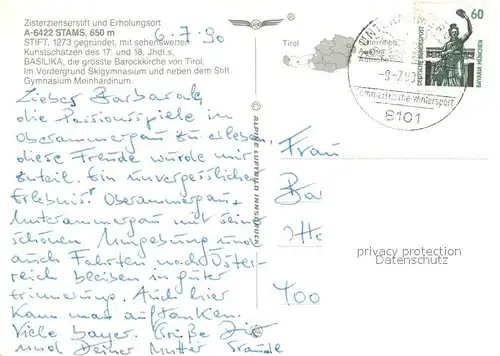 Zisterzienserstift und Erholungsort
A-6422 STAMS, 650 m
STIFT, 1273 gegründet, mit sehenswerten
Kunstschätzen des 17. und 18. Jhdt.s,
BASILIKA, die grösste Barockkirche von Tirol.
Im Vordergrund Skigymnasium und neben dem Stift
Gymnasium Meinhardinum.
6.7.90
Liebes Barbarale
die Passionsspiele in
Oberammergau zu erleben,
diese Freude wurde mir
zuteil. Ein unvergessliches
Erlebnis! Oberammergau +
Unterammergau mit seiner
schönen Umgebung und
auch Fahrten nach Öster-
reich bleiben in guter
Erinnerung. Auch hier
kann man auftanken.
Viele bayer. Grüße Dir
und Deiner Mutter Traudl
ALPINE LUFTBILD INNSBRUCK
Tirol
Österreich
60
DEUTSCHE BUNDESPOST
BAVARIA MÜNCHEN
Sommerfrische Wintersport
8101
Frau
Ba
Otto
700
privacy protection
Datenschutz